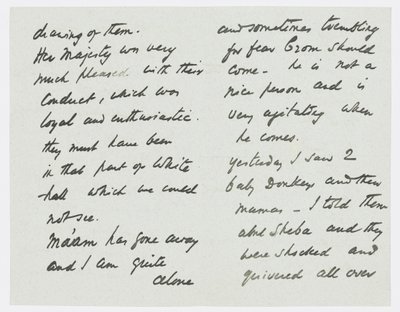 drawing of them.
Her Majesty was very
much pleased with their
conduct, which was
loyal and enthusiastic.
they must have been
in that part of White
-hall which we could
not see.
Ma'am has gone away
and I am quite
alone
and sometimes trembling
for fear Crom should
come - he is not a
nice person and is
very agitating when
he comes.
Yesterday I saw 2
baby Donkeys and their
mamas - I told them
about Sheba and they
were shocked and
quivered all over